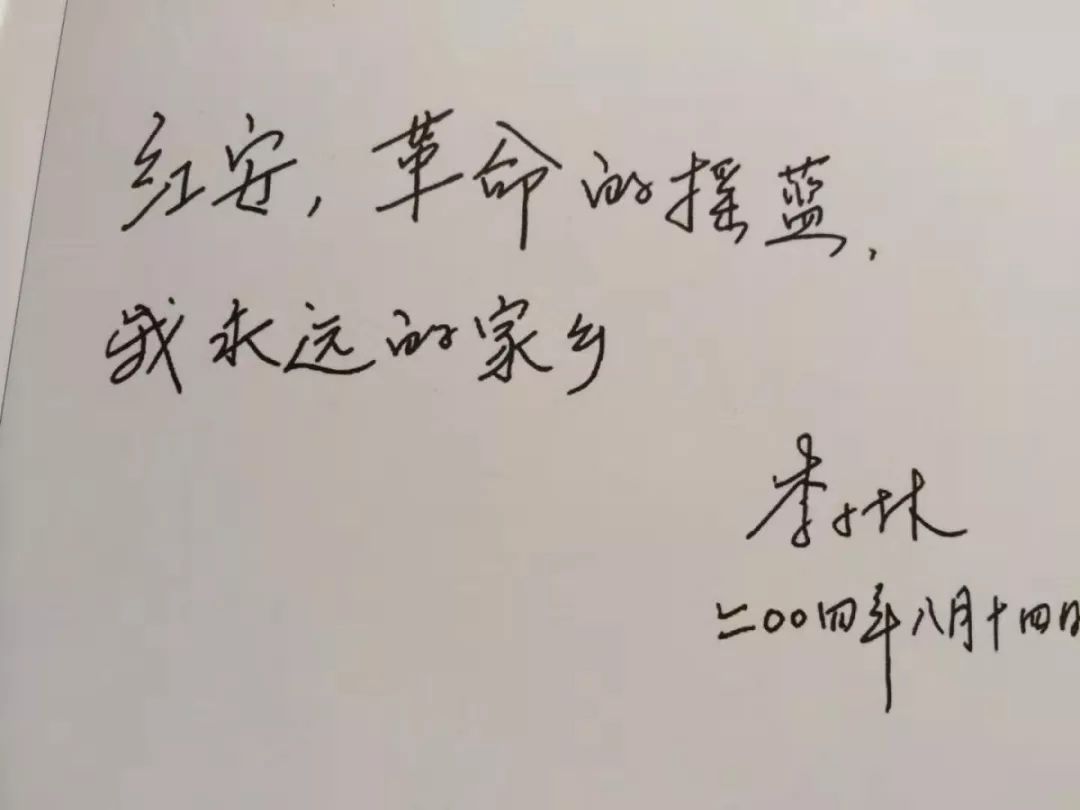 红安，革命的摇蓝，
我永远的家乡
李小林
二〇〇四年八月十四日